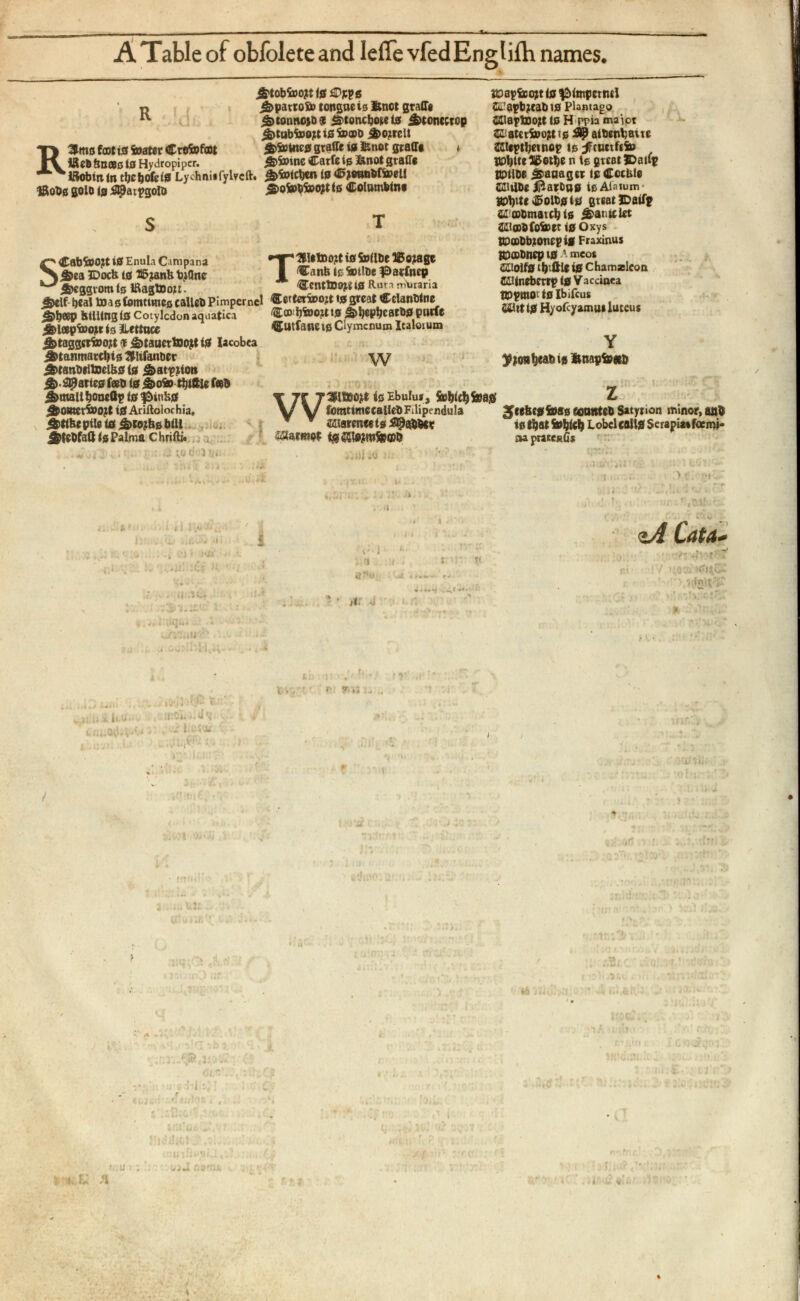 A Table of obsolete and lesse vsed English names.
R
Rams foot is water Crowfoot
Red knees is Hydropiper.
Robin in the hose is Lychnis sylvest.
Rods gold is Marygold
S
SCabwort is Enula Campana
Sea Dock is Brank vrsine
Seggrom is Ragwort.
Self-heal was somtimes called Pimpernel
Sheep killing is Cotyledon aquatica
Sleepwort is Lettuce
Staggerwort & Stauerwort is Iacobea
Stanmarch is Alisander
Standelwelks is Satyrion
S. Maries seed is Sow-thistle seed
Small honesty is Pinks
Sowerwort is Aristolochia,
Stike pile is Storks bill
Stedfast is Palma Christi.
Stobwort is Oxys
Sparrow tongue is Knot grasse
Stonnord & Stonehore is Stonecrop
Stubwort is wood Sorrell
Swines grasse is Knot grasse
Swine Carse is Knot grasse
Swichen is Groundswell
Sowbwort is Columbine
T
TAlewort is wilde Borage
Tank is wilde Parsnep
Tentwort is Ruta muraria
Tetterwort is great Celandine
Toothwort is Shepheards purse
Tutsane is Clymenum Italorum
W
WAlwort is Ebulus, which was
somtime called Filipendula
Warence is Madder
Warmot is Wormwood
Waywort is Pimpernel
Waybread is Plantago
Waywort is Hippia major
Waterwort is Maidenhaire
Weptheruoy is Feuerfew
White Bothen is great Daisy
Wilde Sauager is Cockle
Wilde Nardus is Asarum
White Golds is great Daisy
Woodmarch is Sanicket
Wood sower is Oxys
Woodbroney is Fraxinus
Woodnep is Ameos
Wolfs thistle is Chamæleon
Wineberry is Vaccinea
Wymot is Ibiscus
Wrt is Hyoscyamus luteus
Y
Yronhead is Knapweed
Z
Zeekes was counted Satyrion minor, and
is that which Lobel calls Serapias fœmi-
na pratensis
A Cata-